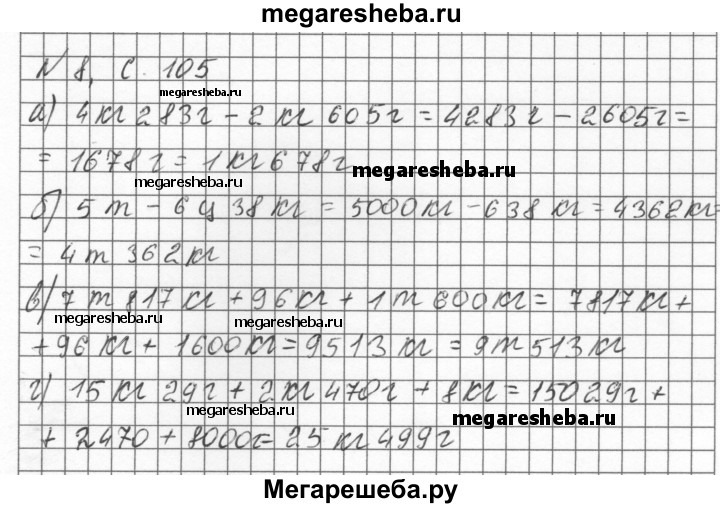 megaresheba.ru
N 8, с. 105
megaresheba.ru
а) 4 кг 283 г - 2 кг 605 г = 4283 г - 2605 г =
= 1678 г = 1 кг 678 г
megaresheba.ru
megaresheba.ru
б) 5 т - 6 ц 38 кг = 5000 кг - 638 кг = 4362 кг =
= 4 т 362 кг
в) 7 т 817 кг + 96 кг + 1 т 600 кг = 7817 кг +
megaresheba.ru megaresheba.ru
+ 96 кг + 1600 кг = 9513 кг = 9 т 513 кг
г) 15 кг 29 г + 2 кг 470 г + 8 кг = 15029 г +
megaresheba.ru megaresheba.ru
+ 2470 + 8000 г = 25 кг 499 г
Мегарешеба.ру